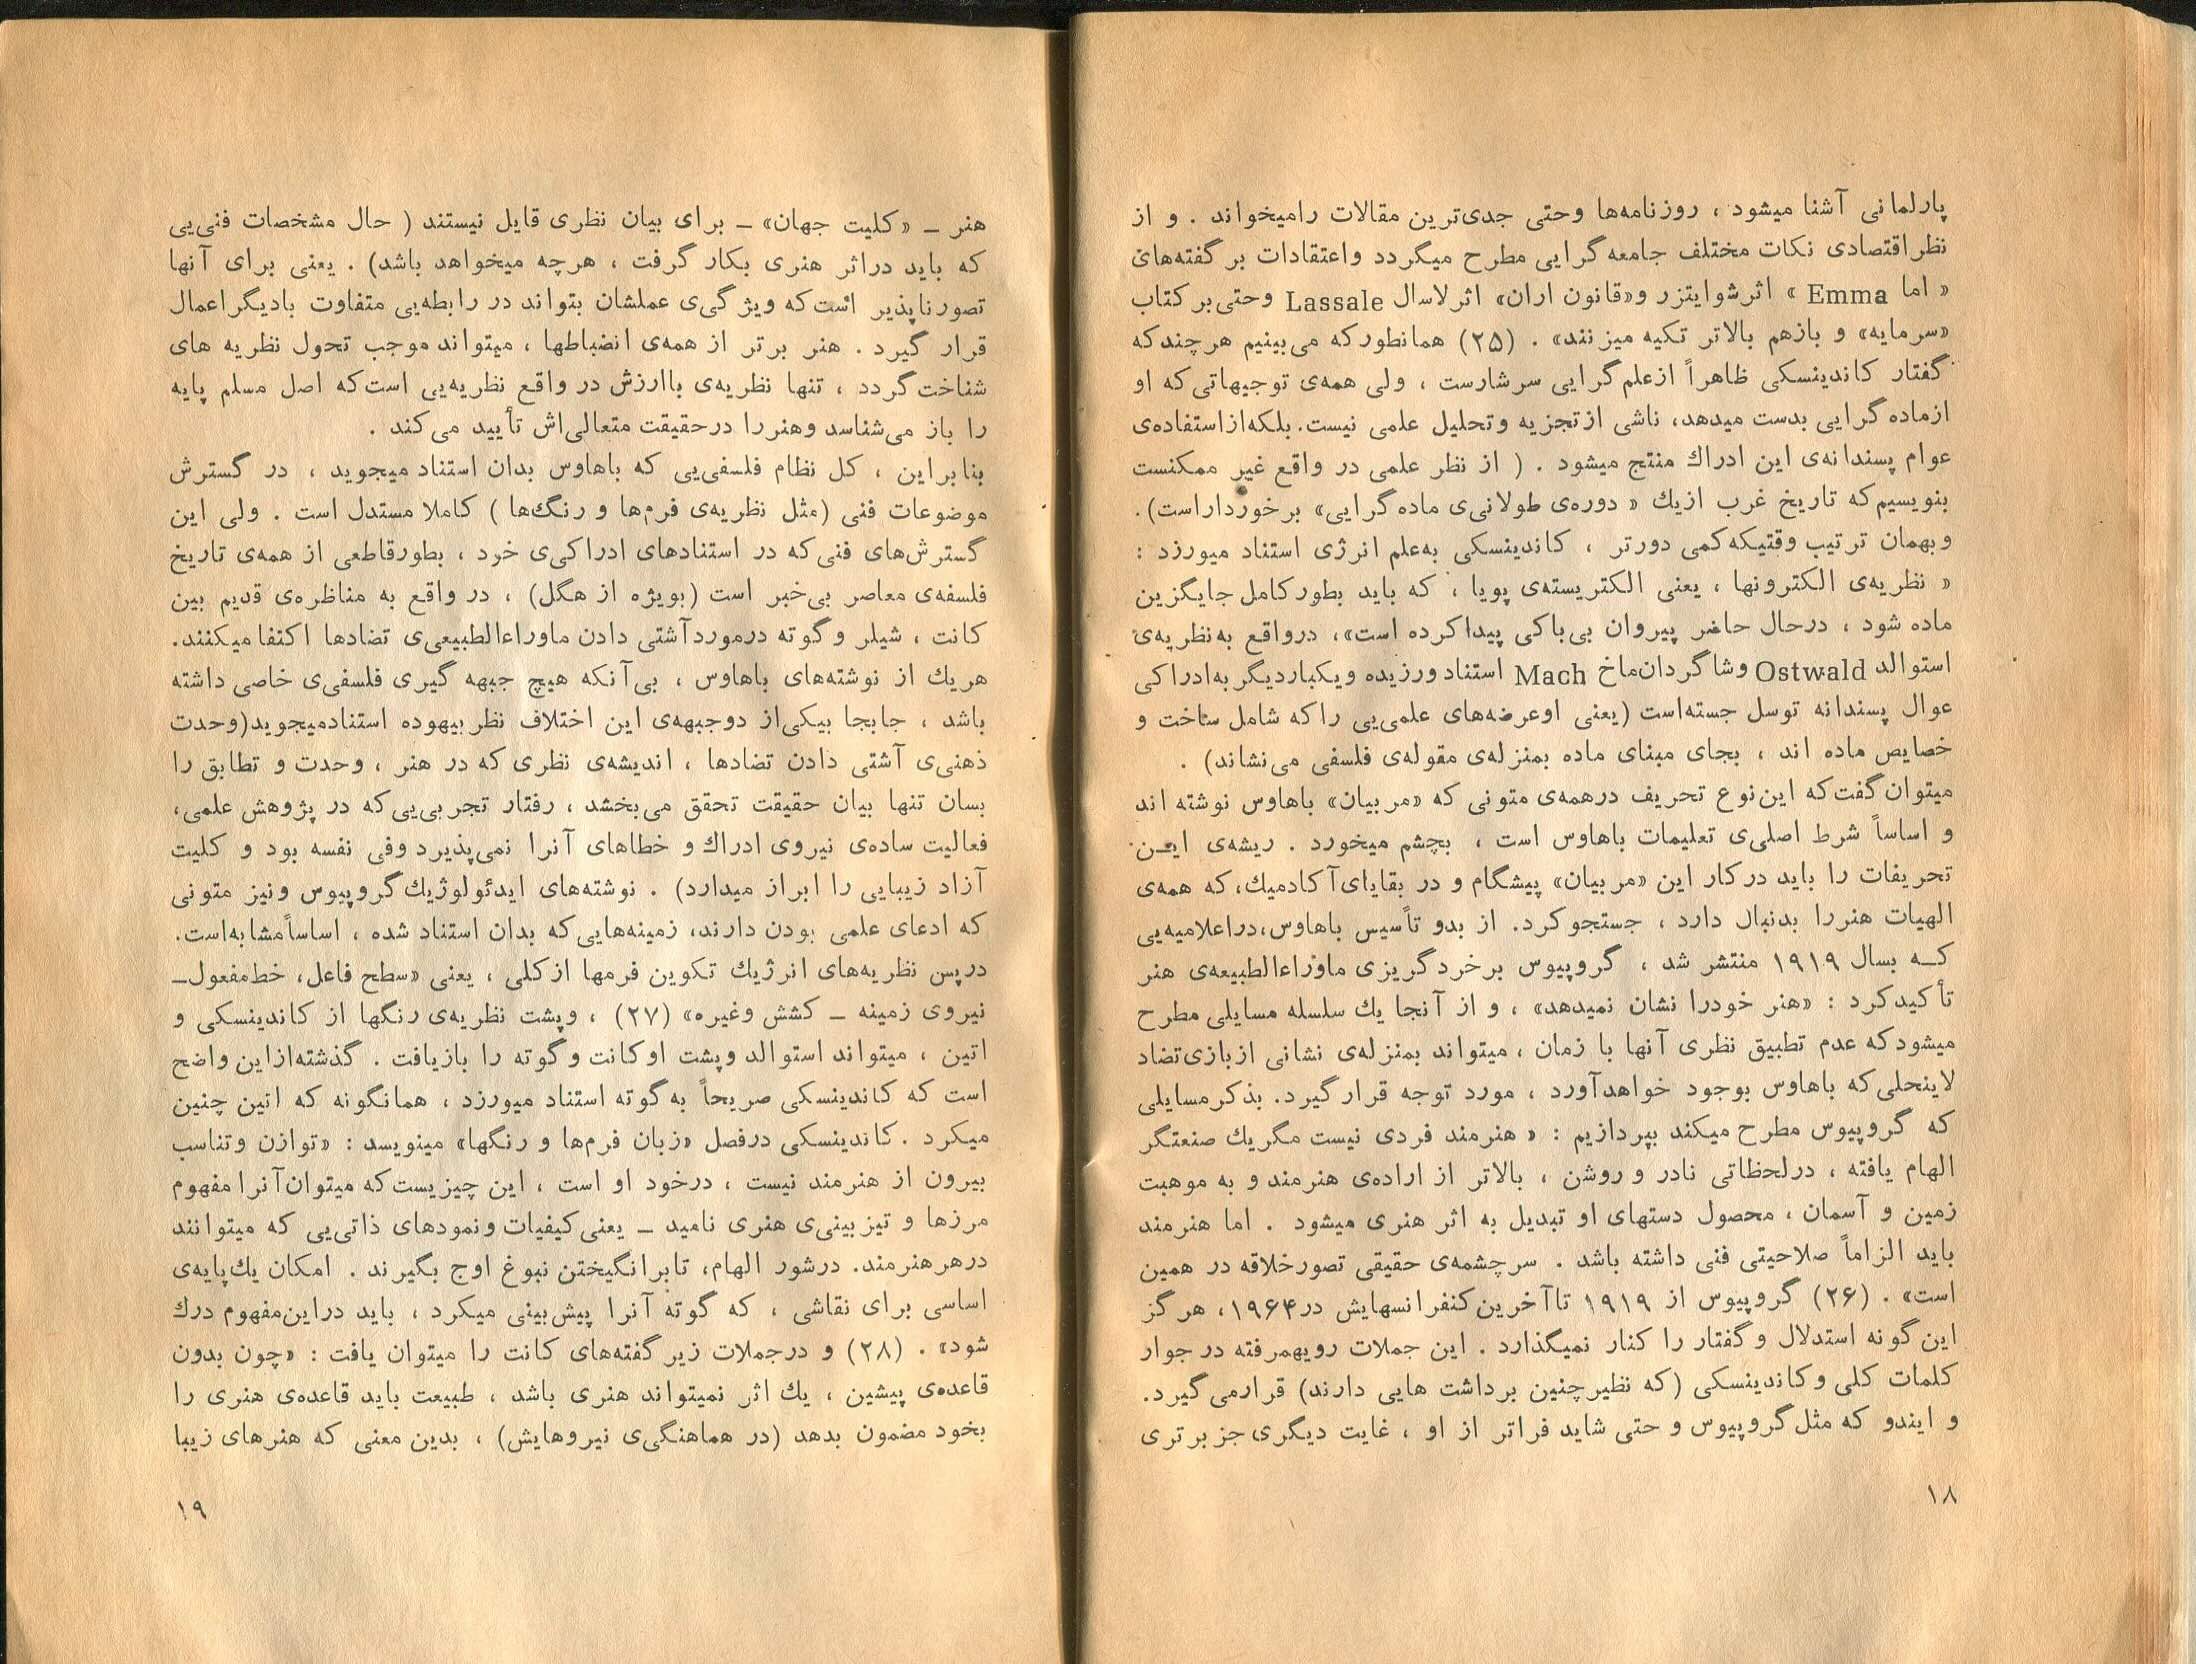 پارلمانی آشنا میشود ، روزنامه‌ها وحتی جدی‌ترین مقالات رامیخواند . و از
نظراقتصادی نکات مختلف جامعه‌گرایی مطرح میگردد واعتقادات بر گفته‌های
« اما Emma » اثرشوایتزر و«قانون اران» اثرلاسال Lassale وحتی‌بر کتاب
«سرمایه» و بازهم بالاتر تکیه میزنند» . (۲۵) همانطورکه می‌بینیم هرچندکه
گفتار کاندینسکی ظاهراً ازعلم‌گرایی سرشارست ، ولی همه‌ی توجیهاتی‌که او
ازماده‌گرایی بدست میدهد، ناشی ازتجزیه وتحلیل علمی نیست. بلکه‌ازاستفاده‌ی
عوام پسندانه‌ی این ادراك منتج میشود . ( از نظر علمی در واقع غیر ممکنست
بنویسیم‌که تاریخ غرب ازیك « دوره‌ی طولانی‌ی ماده‌گرایی» برخورداراست).
وبهمان ترتیب وقتیکه‌کمی دورتر ، کاندینسکی به‌علم انرژی استناد میورزد :
« نظریه‌ی الکترونها ، یعنی الکتریسته‌ی پویا ، که باید بطورکامل جایگزین
ماده شود ، درحال حاضر پیروان بی‌باکی پیداکرده است»، درواقع به‌نظریه‌ی
استوالد Ostwald وشاگردان‌ماخ Mach استنادورزیده ویکباردیگربه‌ادراکی
عوال پسندانه توسل جسته‌است (یعنی اوعرضه‌های علمی‌یی راکه شامل ساخت و
خصایص ماده اند ، بجای مبنای ماده بمنزله‌ی مقوله‌ی فلسفی می‌نشاند) .
میتوان‌گفت‌که این‌نوع تحریف درهمه‌ی متونی که «مربیان» باهاوس نوشته اند
و اساساً شرط اصلی‌ی تعلیمات باهاوس است ، بچشم میخورد . ریشه‌ی ایـن
تحریفات را باید درکار این «مربیان» پیشگام و در بقایای‌آکادمیك، که همه‌ی
الهیات هنررا بدنبال دارد ، جستجوکرد. از بدو تأسیس باهاوس،دراعلامیه‌یی
کـه بسال ۱۹۱۹ منتشر شد ، گروپیوس برخردگریزی ماوراءالطبیعه‌ی هنر
تأکیدکرد : «هنر خودرا نشان نمیدهد» ، و از آنجا یك سلسله مسایلی مطرح
میشودکه عدم تطبیق نظری آنها با زمان ، میتواند بمنزله‌ی نشانی ازبازی‌تضاد
لاینحلی‌که باهاوس بوجود خواهدآورد ، مورد توجه قرارگیرد. بذکرمسایلی
که گروپیوس مطرح میکند بپردازیم : « هنرمند فردی نیست مگریك صنعتگر
الهام یافته ، درلحظاتی نادر و روشن ، بالاتر از اراده‌ی هنرمند و به موهبت
زمین و آسمان ، محصول دستهای او تبدیل به اثر هنری میشود . اما هنرمند
باید الزاماً صلاحیتی فنی داشته باشد . سرچشمه‌ی حقیقی تصورخلاقه در همین
است» . (۲۶) گروپیوس از ۱۹۱۹ تاآخرین‌کنفرانسهایش در۱۹۶۴، هرگز
این گونه استدلال وگفتار را کنار نمیگذارد . این جملات رویهمرفته درجوار
کلمات کلی وکاندینسکی (که نظیرچنین برداشت هایی دارند) قرارمی‌گیرد.
و ایندو که مثل‌گروپیوس و حتی شاید فراتر از او ، غایت دیگری جز برتری
۱۸
هنر ــ «کلیت جهان» ــ برای بیان نظری قایل نیستند ( حال مشخصات فنی‌یی
که باید دراثر هنری بکار گرفت ، هرچه میخواهد باشد) . یعنی برای آنها
تصورناپذیر است‌که ویژگی‌ی عملشان بتواند در رابطه‌یی متفاوت بادیگراعمال
قرار گیرد . هنر برتر از همه‌ی انضباطها ، میتواند موجب تحول نظریه های
شناخت‌گردد ، تنها نظریه‌ی باارزش در واقع نظریه‌یی است‌که اصل مسلم پایه
را باز می‌شناسد وهنررا درحقیقت متعالی‌اش تأیید می‌کند .
بنابراین ، کل نظام فلسفی‌یی که باهاوس بدان استناد میجوید ، در گسترش
موضوعات فنی (مثل نظریه‌ی فرم‌ها و رنگ‌ها ) کاملا مستدل است . ولی این
گسترش‌های فنی‌که در استنادهای ادراکی‌ی خرد ، بطورقاطعی از همه‌ی تاریخ
فلسفه‌ی معاصر بی‌خبر است (بویژه از هگل) ، در واقع به مناظره‌ی قدیم بین
کانت ، شیلر وگوته درموردآشتی دادن ماوراءالطبیعی‌ی تضادها اکتفامیکنند.
هریك از نوشته‌های باهاوس ، بی‌آنکه هیچ جبهه گیری فلسفی‌ی خاصی داشته
باشد ، جابجا بیکی‌از دوجبهه‌ی این اختلاف نظربیهوده استنادمیجوید(وحدت
ذهنی‌ی آشتی دادن تضادها ، اندیشه‌ی نظری که در هنر ، وحدت و تطابق را
بسان تنها بیان حقیقت تحقق می‌بخشد ، رفتار تجربی‌یی‌که در پژوهش علمی،
فعالیت ساده‌ی نیروی ادراك و خطاهای آنرا نمی‌پذیرد وفی نفسه بود و کلیت
آزاد زیبایی را ابراز میدارد) . نوشته‌های ایدئولوژیك‌گروپیوس ونیز متونی
که ادعای علمی بودن دارند، زمینه‌هایی‌که بدان استناد شده ، اساساًمشابه‌است.
درپس نظریه‌های انرژیك تکوین فرمها ازکلی ، یعنی «سطح فاعل، خط‌مفعول‌ــ
نیروی زمینه ــ کشش وغیره» (۲۷) ، وپشت نظریه‌ی رنگها از کاندینسکی و
اتین ، میتواند استوالد وپشت اوکانت وگوته را بازیافت . گذشته‌ازاین واضح
است که کاندینسکی صریحاً به‌گوته استناد میورزد ، همانگونه که اتین چنین
میکرد .کاندینسکی درفصل «زبان فرم‌ها و رنگها» مینویسد : «توازن وتناسب
بیرون از هنرمند نیست ، درخود او است ، این چیزیست‌که میتوان‌آنرا مفهوم
مرزها و تیزبینی‌ی هنری نامید ــ یعنی‌کیفیات ونمودهای ذاتی‌یی که میتوانند
درهرهنرمند. درشور الهام، تابرانگیختن نبوغ اوج بگیرند . امکان یك‌پایه‌ی
اساسی برای نقاشی ، که گوته آنرا پیش‌بینی میکرد ، باید دراین‌مفهوم درك
شود» . (۲۸) و درجملات زیر گفته‌های کانت را میتوان یافت : «چون بدون
قاعده‌ی پیشین ، یك اثر نمیتواند هنری باشد ، طبیعت باید قاعده‌ی هنری را
بخود مضمون بدهد (در هماهنگی‌ی نیروهایش) ، بدین معنی که هنرهای زیبا
۱۹